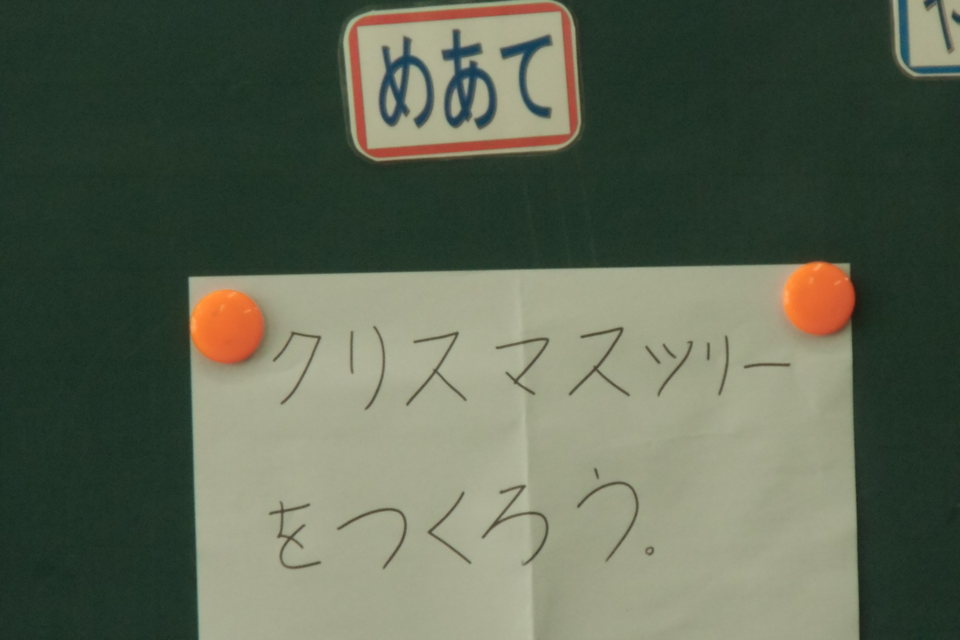 めあて
クリスマスツリー
をつくろう。